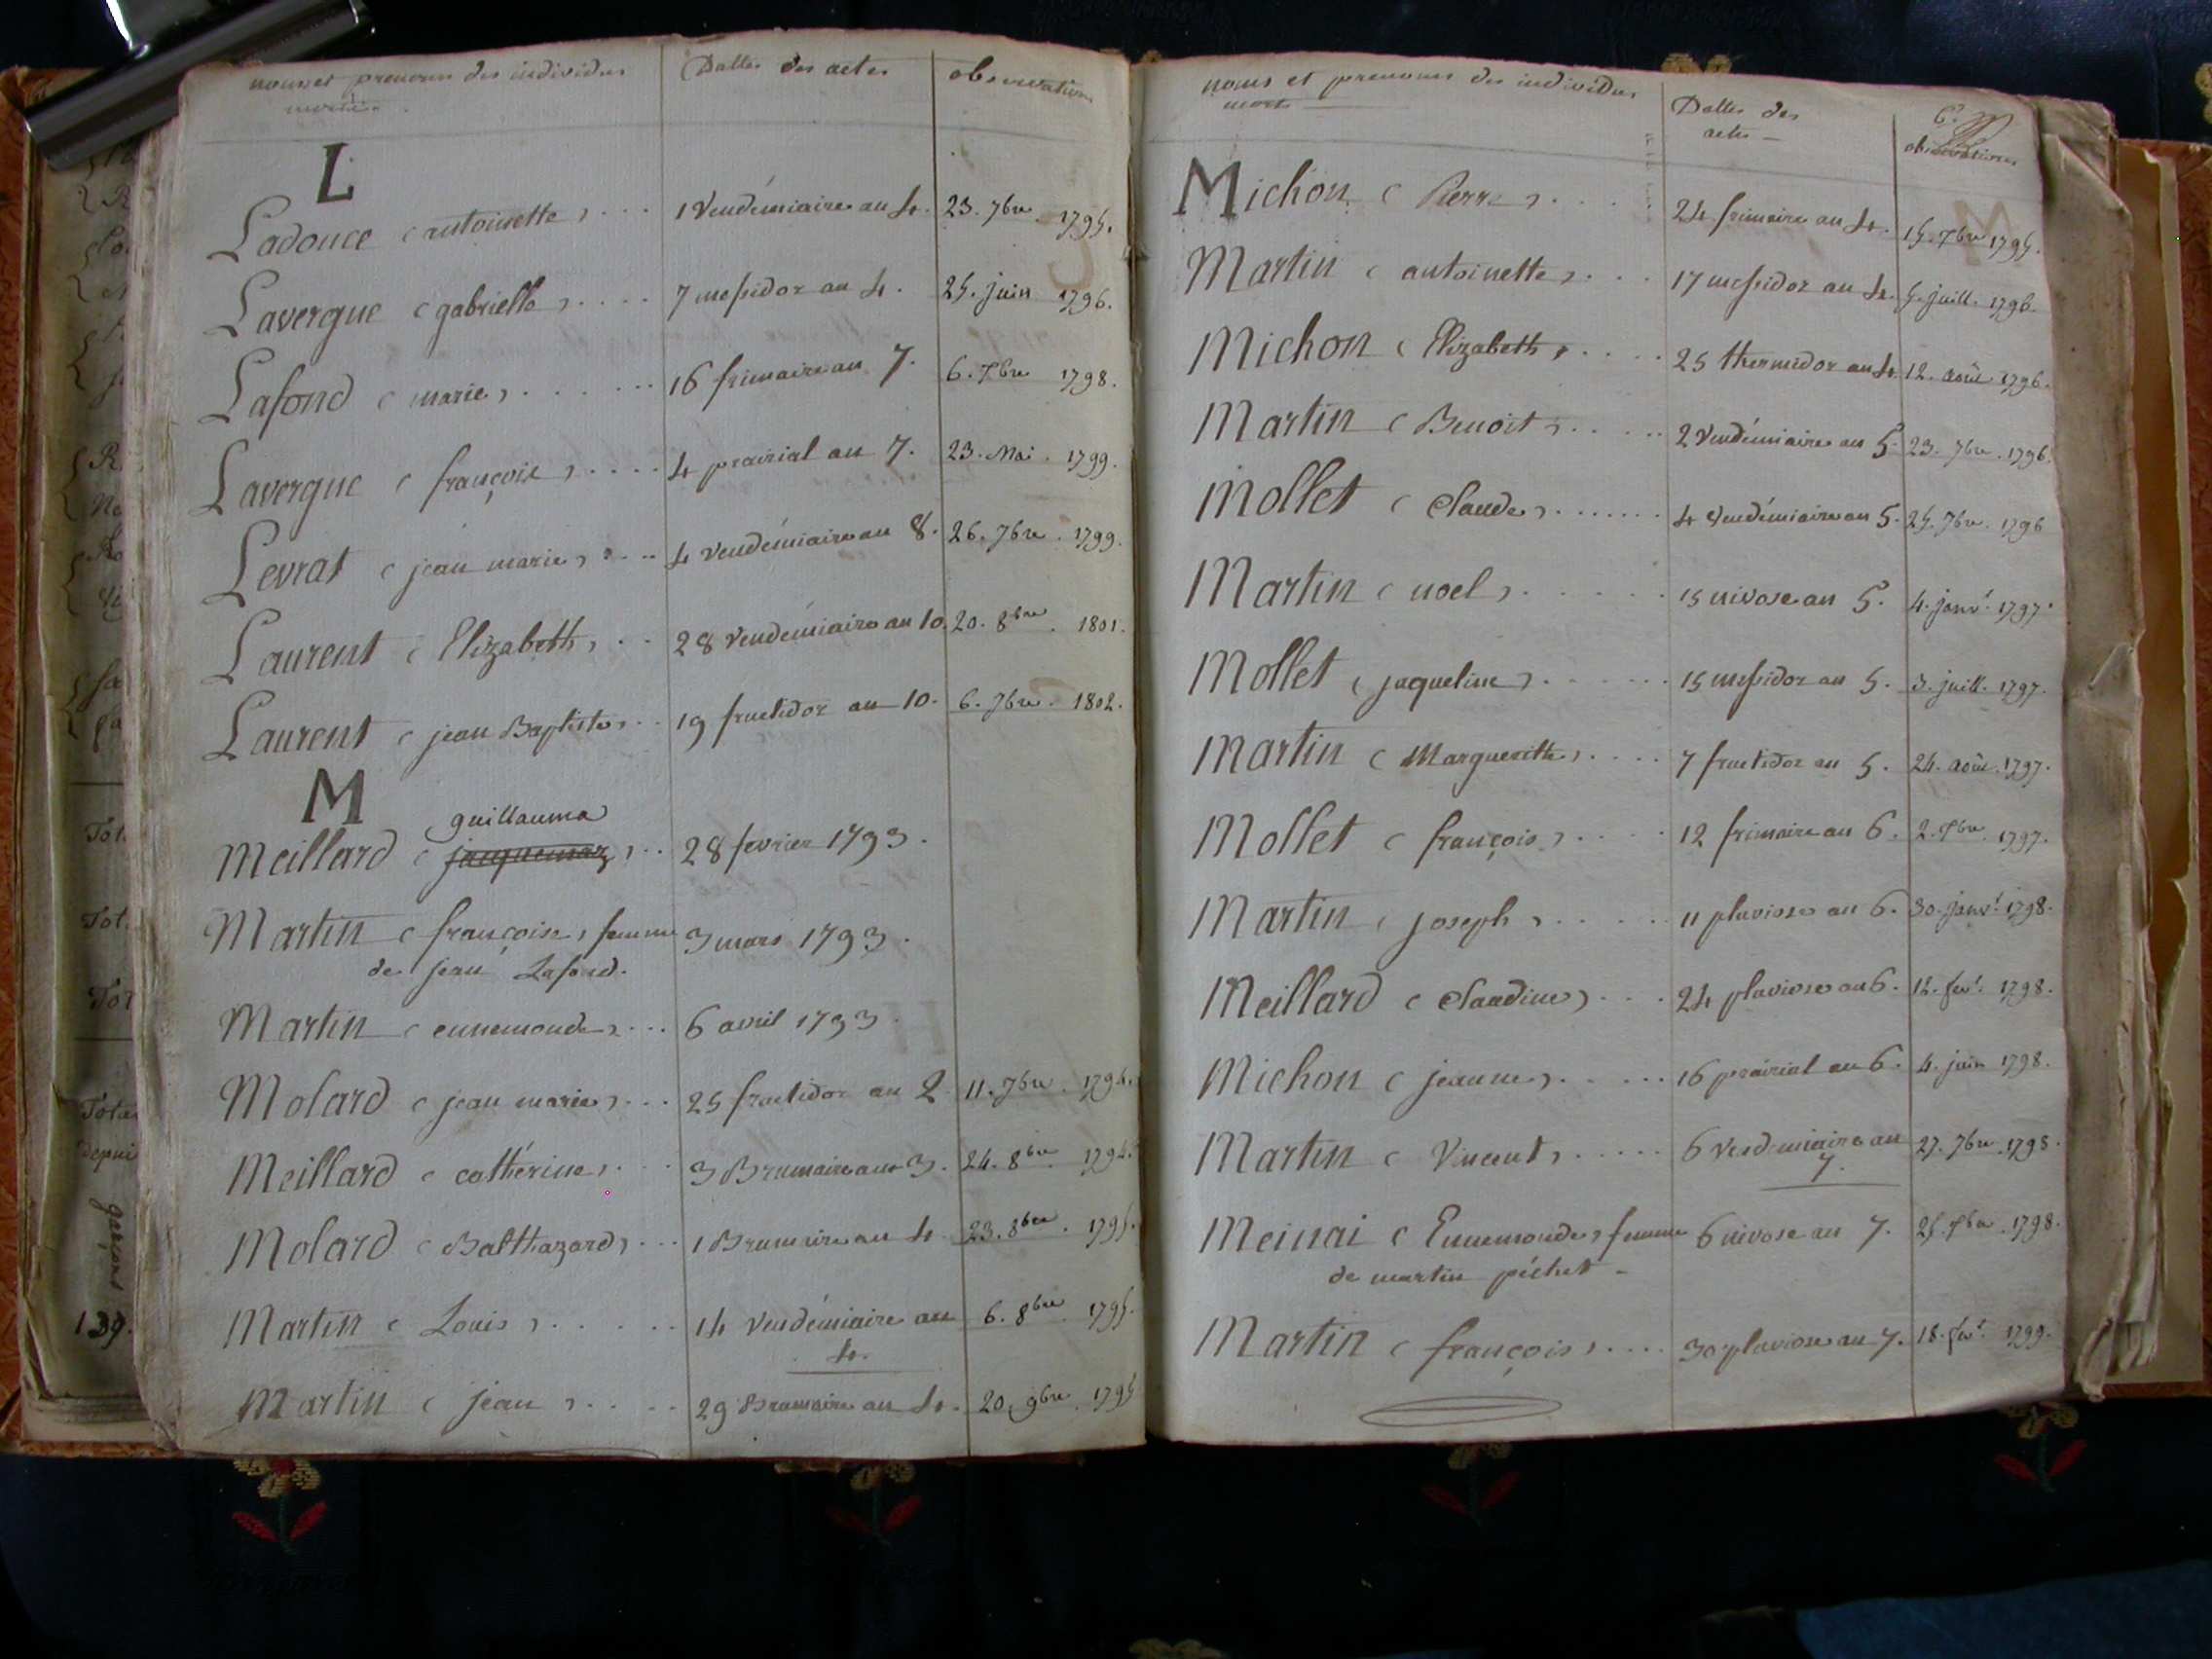 noms et prenoms des individus Dattes des actes observations
morts
L
Ladouce (antoinette) . . . 1 Vendémiaire an 4. 23. 7bre 1795.
Lavergne (gabrielle) . . . . 7 messidor an 4. 25. juin 1796.
Lafond (marie) . . . . . . . 16 frimaire an 7. 6. Xbre 1798.
Lavergne (françoise) . . . . 4 prairial an 7. 23. Mai. 1799.
Levrat (jean marie) . . . . 4 vendémiaire an 8. 26. 7bre. 1799.
Laurent (Elizabeth) . . 28 Vendémiaire an 10. 20. 8bre. 1801.
Laurent (jean Baptiste) . . 19 fructidor an 10. 6. 7bre. 1802.
M
guillauma
Meillard (jacquemaz) . . 28 fevrier 1793.
Martin (françoise) femme 3 mars 1793.
de jean Lafond.
Martin (ennemonde) . . . 6 avril 1793.
Molard (jean marie) . . . 25 fructidor an 2 11. 7bre. 1794.
Meillard (cathérine) . . . 3 Brumaire an 3. 24. 8bre. 1794.
Molard (Balthazard) . . . 1 Brumaire an 4 23. 8bre. 1795.
Martin (Louis) . . . . . 14 Vendémiaire an 6. 8bre 1795.
4.
Martin (jean) . . . . 29 Brumaire an 4. 20. 9bre. 1795
noms et prenoms des individus Dattes des 6.
morts actes observations
Michon (Pierre) . . . . . 24 frimaire an 4. 15. Xbre 1795.
Martin (antoinette) . . . . 17 messidor an 4. 5. juill. 1796.
Michon (Elizabeth) . . . . . 25 thermidor an 4 12. août 1796.
Martin (Benoit) . . . . . 2 Vendémiaire an 5. 23. 7bre. 1796.
Mollet (Claude) . . . . . . . 4 Vendémiaire an 5. 25. 7bre. 1796
Martin (noel) . . . . . . 15 nivose an 5. 4. janvr. 1797.
Mollet (jaqueline) . . . . . . . 15 messidor an 5. 3. juill. 1797.
Martin (Marguerithe) . . . . 7 fructidor an 5. 24. août. 1797.
Mollet (françois) . . . . 12 frimaire an 6. 2. Xbre 1797.
Martin (joseph) . . . . . . 11 pluviose an 6. 30. janvr. 1798.
Meillard (Claudine) . . . . 24 pluviose an 6. 12. fevr. 1798.
Michon (jeanne) . . . . . 16 prairial an 6. 4. juin 1798.
Martin (Vincent) . . . . . 6 Vendemiaire an 27. 7bre. 1798.
7.
Meinai (Ennemonde) femme 6 nivose an 7. 25. Xbre. 1798.
de martin péchet -
Martin (françois) . . . . 30 pluviose an 7. 18. fevr. 1799.
Tot.
Tot.
Tot
Total
depuis
garçons
139.